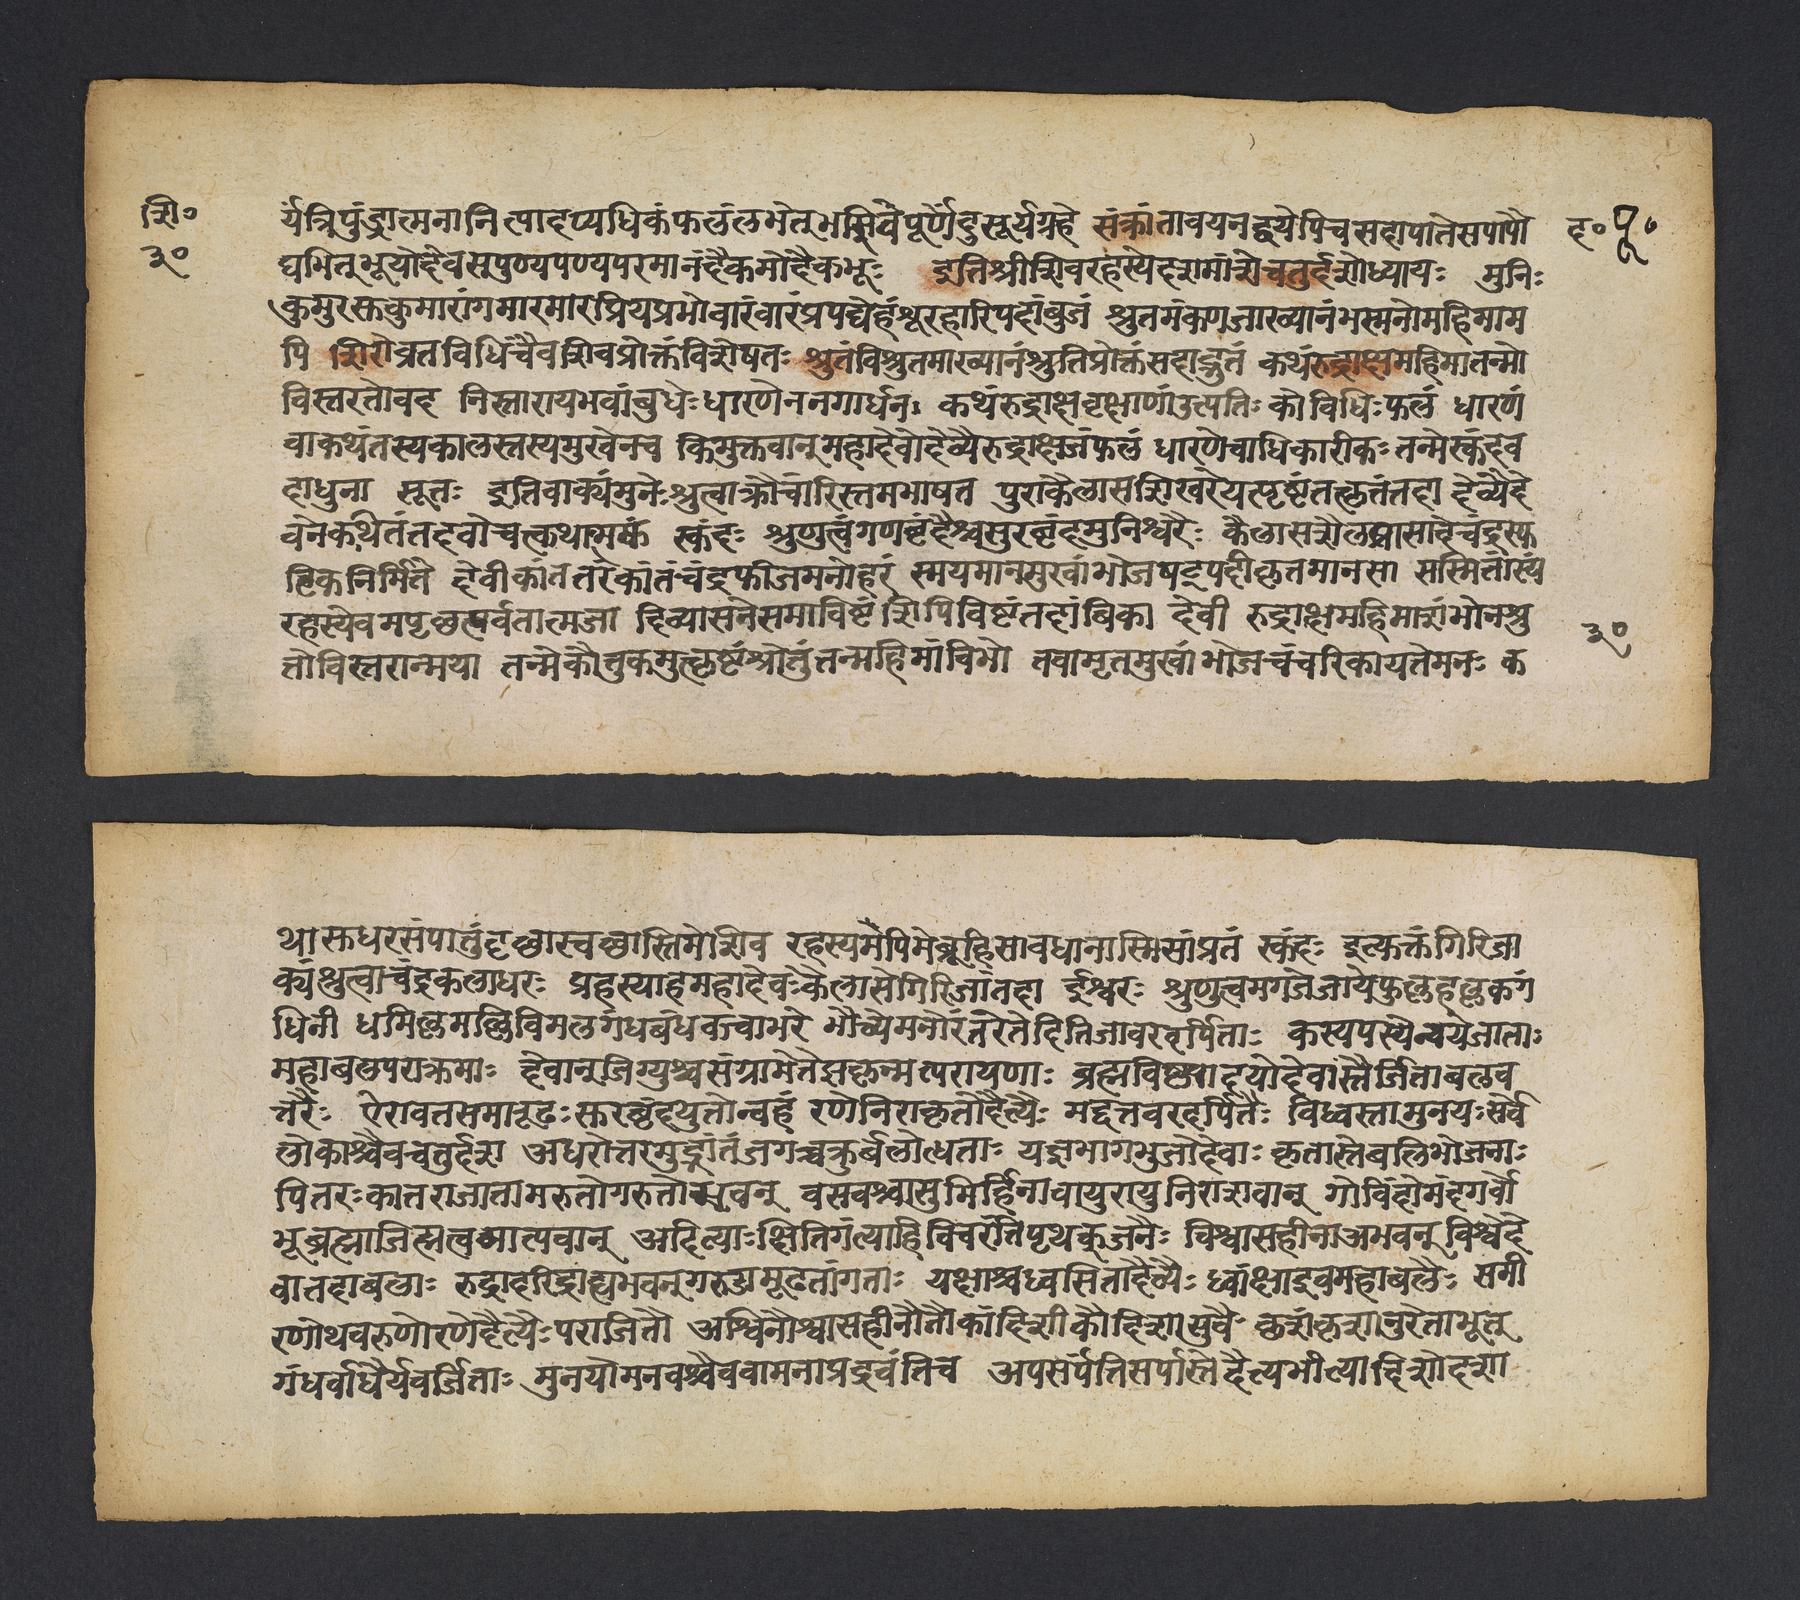 शि॰
३०
द॰ पू॰
र्यत्रिपुंड्रात्मनानित्यादप्यधिकंफलंलभेतुभसितेपूर्णेंदुसूर्यग्रहे संक्रांतावयनद्वयेपिचसहापातेसपापौ
घभितुभूयोदेवसुपुण्यपण्यपरमानंदैकमोदैकभूः इतिश्रीशिवरहस्येदशमांशेचतुर्दशोध्यायः मुनिः
कुमुरक्तकुमारांगमारमारप्रियप्रभोवारंवारंप्रपद्येहंशूरहारिपदांबुजं श्रुतमंकणजाख्यानंभस्मनोमहिमाम
पि शिरोव्रतविधिंचैवशिवप्रोक्तंविशेषतः श्रुतंविश्रुतमाख्यानंश्रुतिप्रोक्तंसहाद्भुतं कथंरुद्राक्षमहिमातन्मो
विस्तरतोवद निस्तारायभवांबुधेःधारणेननगार्धन कथंरुद्राक्षवृक्षाणांउत्पतिःकोविधिःफलं धारणं
वाकथंतस्यकालस्तस्यमुखेनच किमुक्तवान्महादेवोदेव्यैरुद्राक्षजंफलं धारणेवाधिकारीकःतन्मेस्कंदव
दाधुना सूतः इतिवाक्यंमुनेःश्रुत्वाक्रौंचारिस्तमभाषत पुराकैलासशिखरेयत्पृष्टंतत्कृतंतदा देव्यैदे
वेनकथितंतद्दवोचत्कथामकं स्कंदः श्रुणुत्वंगणवृंदैश्चसुरवृंदमुनिश्वरैः कैलासशैलमासाद्येचंद्रस्फ
टिकनिर्मिते देवीकांततरेकांतंचंद्रफीजमनोहरं स्मयमानसुखांभोजषट्पदीकृतमानसा सस्मितास्यं
रहस्येवमपृछत्पर्वतात्मजा दिव्यासनेसमाविष्टंशिपिविष्टंतदांबिका देवी रुद्राक्षमहिमाशंभोनश्रु
तोविस्तरान्मया तन्मेकौतुकमुत्कृष्टंश्रोतुंतन्महिमांविभो तवामृतमुखांभोजचंचरिकायतेमनः क
३०
थास्तधरसंपातुंदृछास्वछास्तिमेशिव रहस्यमपिमेब्रूहिसावधानास्मिसांप्रतं स्कंदः इत्युक्तंगिरिजा
क्यंश्रुत्वाचंद्रकलाधरः प्रहस्याहमहादेवःकैलासेगिरिजांतदा ईश्वरः श्रुणुत्वमगजेजायेफुल्लहल्लकगं
धिनी धमिल्लमल्लिविमलगंधबंधवज्वाभरे भौव्येमनोरंतरेतेदितिजावरदर्पिताः कस्यपस्यैन्वयेजाताः
महाबलपराक्रमाः देवान्जिग्युश्चसंग्रामेतेसकृन्मत्परायणाः ब्रह्मविष्ण्वादयोदेवास्तैर्जिताबलव
त्तरैः ऐरावतसमारूढःस्तरवृंदयुतोन्वहं रणेनिराकृतोदैत्यैः मद्दत्तवरदर्पितैः विध्वस्तामुनयःसर्वे
लोकाश्चैवचतुर्दश अधरोत्तरमुद्भ्रांतंजगच्चक्रुर्बलोत्धताः यज्ञभागभुजोदेवाः कृतास्तेबलिभोजनाः
पितरःकातराजातामरुतोगरुतोभवन् वसवश्चासुभिर्हीनावायुरायुनिराशवान् गोविंदोमंदगर्वो
भूब्रह्माजिह्मत्वमाप्तवान् अदित्याःक्षितिगंत्याहिविचरंतिपृथक्जनैः विश्वासहीनाअभवन्विश्वेदे
वातदाबलाः रुद्राहरिद्राह्यभवन्गरुडामूढतांगताः यक्षाश्चध्वसितादैव्यैः ध्वांक्षाइवमहाबलैः समी
रणोथवरुणोरणेदैत्यैःपराजितौ अश्विनौश्वासहीनौतौकांदिशीकौदिशासुवै कृशकृशानुरेताभूत्
गंधर्वाधैर्यवर्जिताः मुनयोमनवश्चैववामनाप्रद्रवंतिच अपसर्पंतिसर्पास्तेदैत्यभीत्यादिशोदश